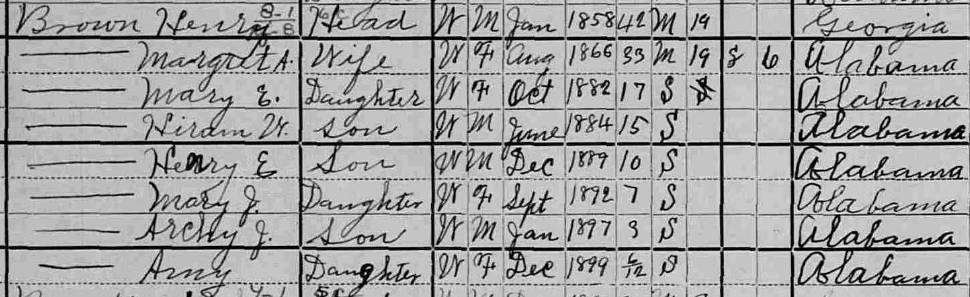 Brown Henry 8-1 Head W M Jan 1858 42 M 19 Georgia
Margret A. Wife W F Aug 1866 33 M 19 8 6 Alabama
Mary E. Daughter W F Oct 1882 17 S Alabama
Hiram W. Son W M June 1884 15 S Alabama
Henry E Son W M Dec 1889 10 S Alabama
Mary J. Daughter W F Sept 1892 7 S Alabama
Archy J. Son W M Jan 1897 3 S Alabama
Amy Daughter W F Dec 1899 S Alabama